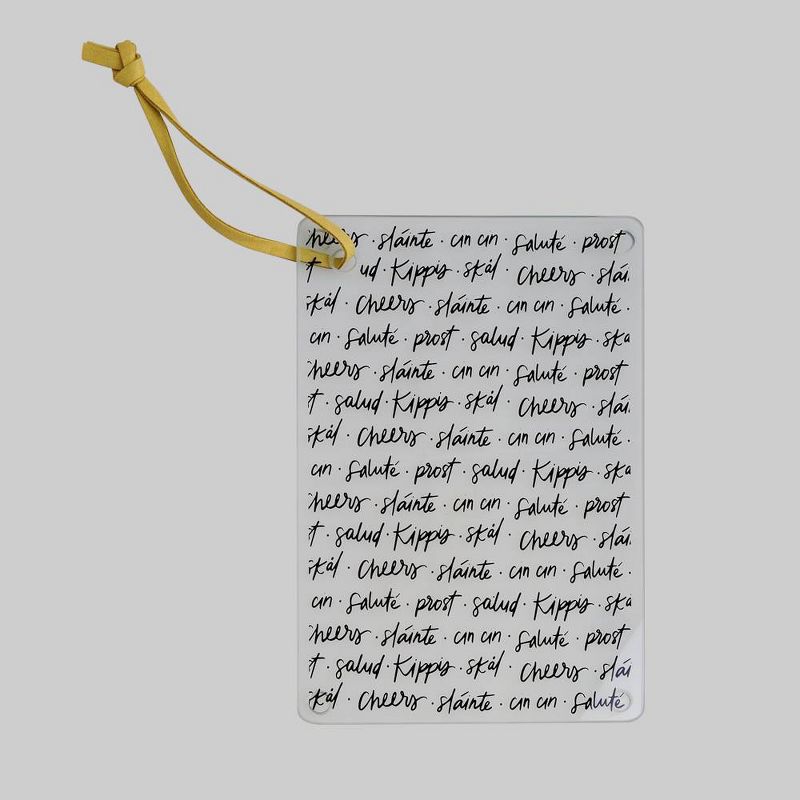 sláinte · cin cin · Saluté · prost
Kippis · skål · Cheers · slái
skål · Cheers · sláinte · cin cin · Saluté ·
cin · Saluté · prost · salud · Kippis · ska
Cheers · sláinte · cin cin · Saluté · prost
t · salud · Kippis · skål · Cheers · slái
skål · Cheers · sláinte · cin cin · Saluté ·
cin · Saluté · prost · salud · Kippis · ska
Cheers · sláinte · cin cin · Saluté · prost
t · salud · Kippis · skål · Cheers · slái
skål · Cheers · sláinte · cin cin · Saluté ·
cin · Saluté · prost · salud · Kippis · ska
Cheers · sláinte · cin cin · Saluté · prost
t · salud · Kippis · skål · Cheers · slái
skål · Cheers · sláinte · cin cin · Saluté